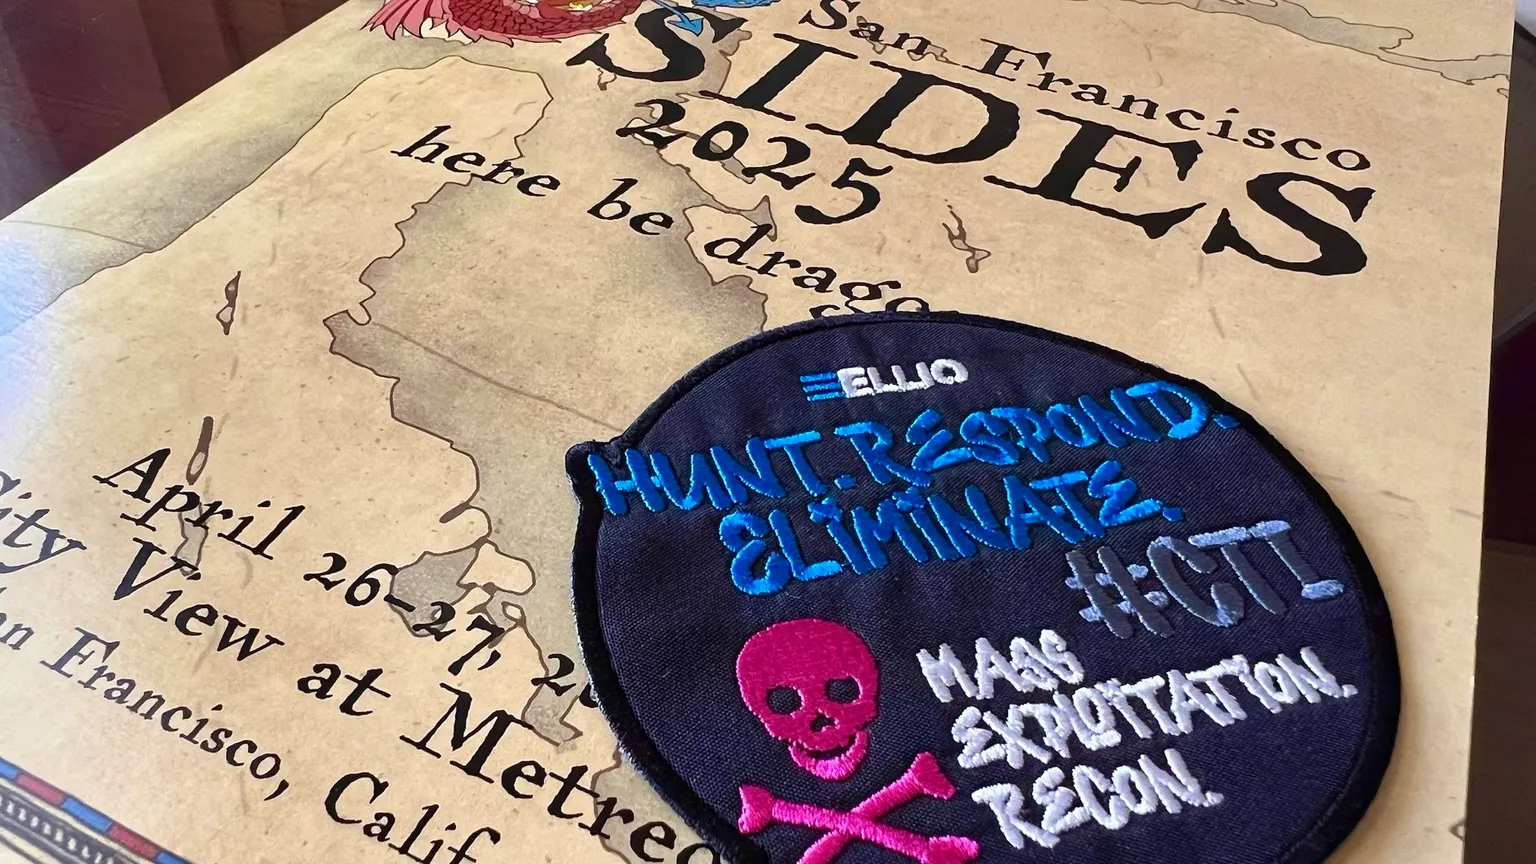 San Francisco
SIDES
2025
here be drago
April 26-27, 2
City View at Metreo
San Francisco, Calif
ELLIO
HUNT. RESPOND.
ELIMINATE.
#CTI
MASS
EXPLOITATION.
RECON.